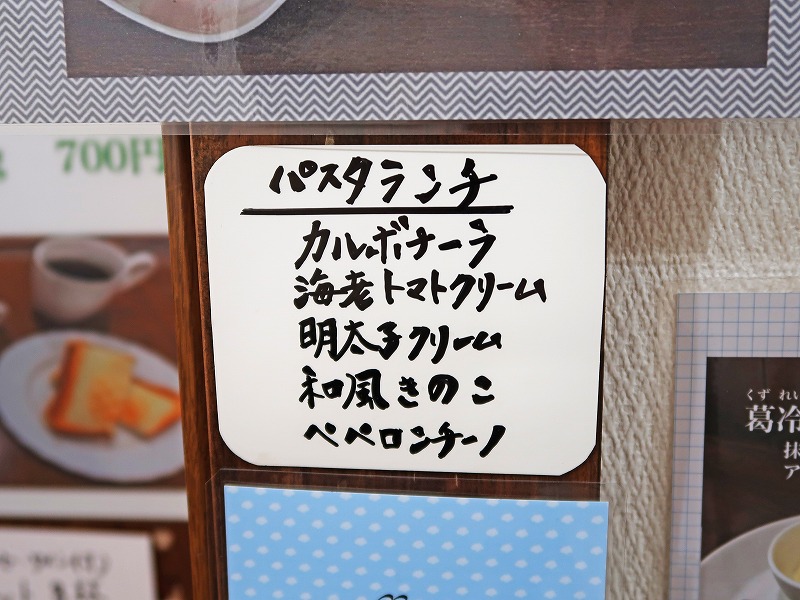 700円
パスタランチ
カルボナーラ
海老トマトクリーム
明太子クリーム
和風きのこ
ペペロンチーノ
くず れい
葛冷
抹
ア